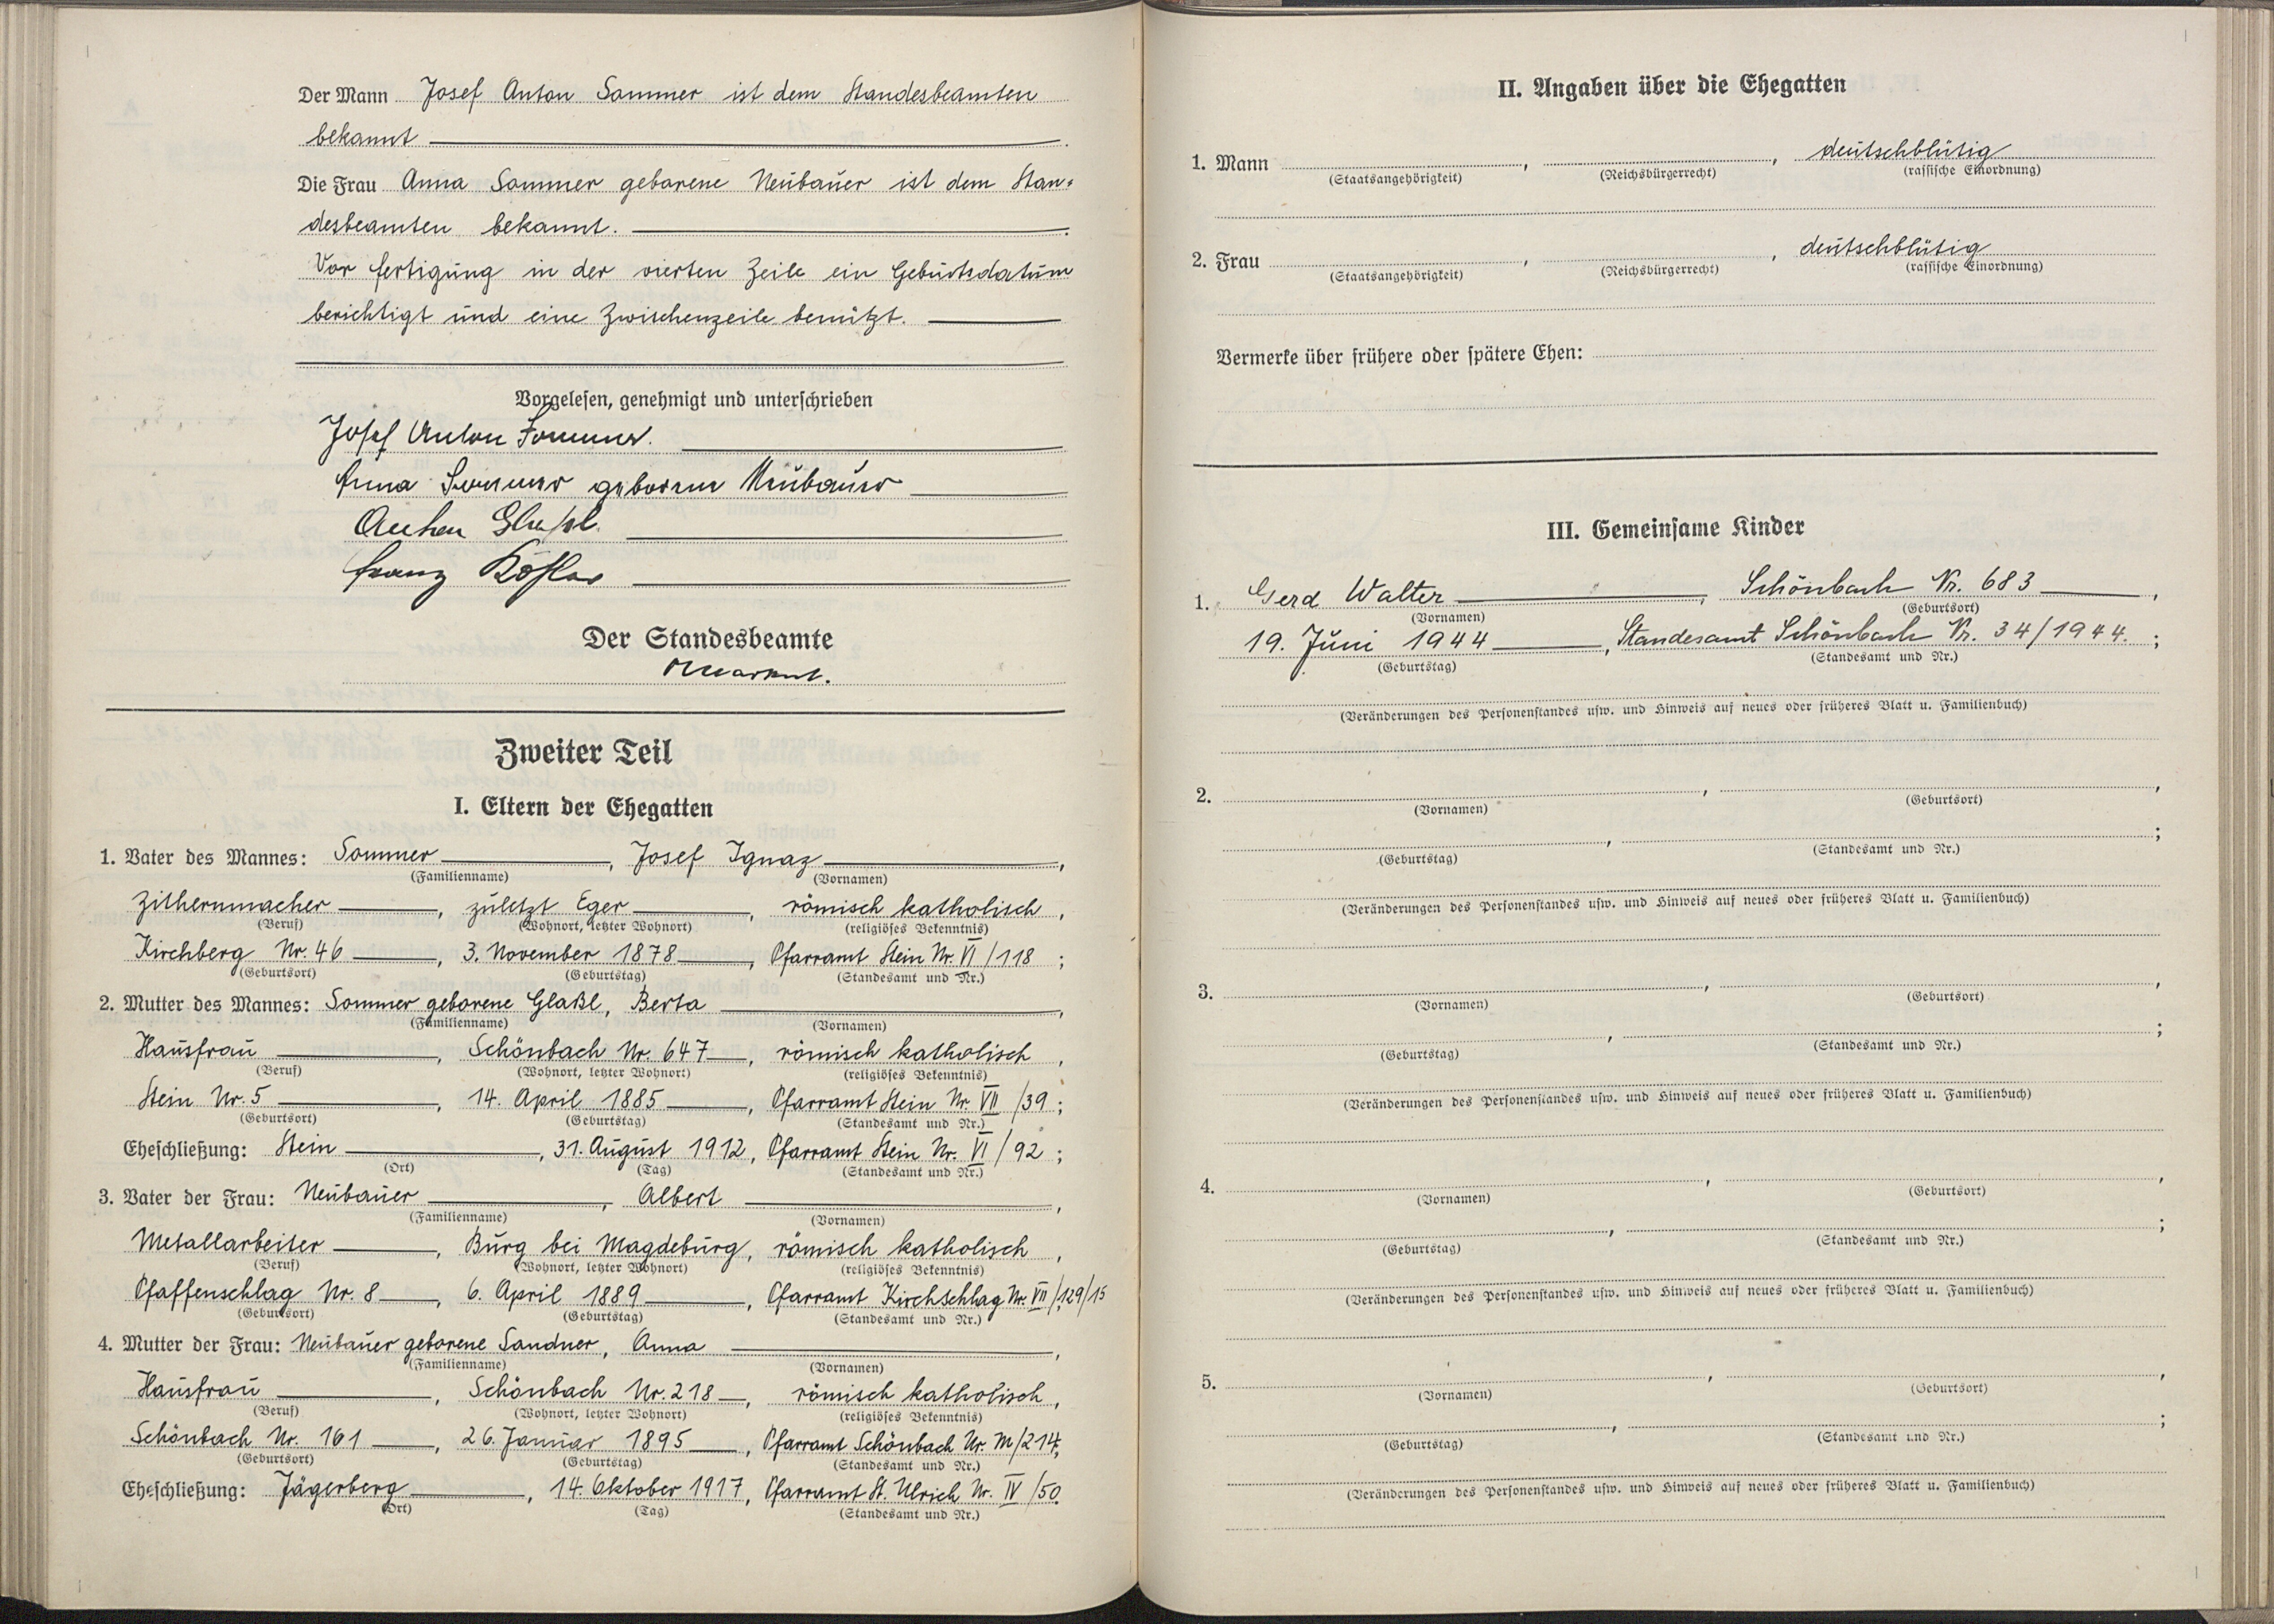 Der Mann Josef Anton Sommer ist dem Standesbeamten
bekannt
Die Frau Anna Sommer geborene Neubauer ist dem Stan=
desbeamten bekannt.
Vor fertigung in der vierten Zeile ein Geburtsdatum
berichtigt und eine Zwischenzeile benützt.
Vorgelesen, genehmigt und unterschrieben
Josef Anton Sommer.
Anna Sommer geborene Neubauer
Anton Glassl.
Franz
Der Standesbeamte
Zweiter Teil
I. Eltern der Ehegatten
1. Vater des Mannes: Sommer, Josef Ignaz,
(Familienname) (Vornamen)
Zithernmacher, zuletzt Eger, römisch katholisch,
(Beruf) (Wohnort, letzter Wohnort) (religiöses Bekenntnis)
Kirchberg Nr. 46, 3. November 1878, Pfarramt Stein Nr. VI/118;
(Geburtsort) (Geburtstag) (Standesamt und Nr.)
2. Mutter des Mannes: Sommer geborene Glaßl, Berta,
(Familienname) (Vornamen)
Hausfrau, Schönbach Nr. 647, römisch katholisch,
(Beruf) (Wohnort, letzter Wohnort) (religiöses Bekenntnis)
Stein Nr. 5, 14. April 1885, Pfarramt Stein Nr. VII/39;
(Geburtsort) (Geburtstag) (Standesamt und Nr.)
Eheschließung: Stein, 31. August 1912, Pfarramt Stein Nr. VI/92;
(Ort) (Tag) (Standesamt und Nr.)
3. Vater der Frau: Neubauer, Albert,
(Familienname) (Vornamen)
Metallarbeiter, Burg bei Magdeburg, römisch katholisch,
(Beruf) (Wohnort, letzter Wohnort) (religiöses Bekenntnis)
Pfaffenschlag Nr. 8, 6. April 1889, Pfarramt Kirchschlag Nr. VII/129/15
(Geburtsort) (Geburtstag) (Standesamt und Nr.)
4. Mutter der Frau: Neubauer geborene Sandner, Anna,
(Familienname) (Vornamen)
Hausfrau, Schönbach Nr. 218, römisch katholisch,
(Beruf) (Wohnort, letzter Wohnort) (religiöses Bekenntnis)
Schönbach Nr. 161, 26. Januar 1895, Pfarramt Schönbach Nr. M/214;
(Geburtsort) (Geburtstag) (Standesamt und Nr.)
Eheschließung: Jägerberg, 14. Oktober 1917, Pfarramt St. Ulrich Nr. IV/50.
(Ort) (Tag) (Standesamt und Nr.)
II. Angaben über die Ehegatten
1. Mann , , deutschblütig
(Staatsangehörigkeit) (Reichsbürgerrecht) (rassische Einordnung)
2. Frau , , deutschblütig
(Staatsangehörigkeit) (Reichsbürgerrecht) (rassische Einordnung)
Vermerke über frühere oder spätere Ehen:
III. Gemeinsame Kinder
1. Gerd Walter, Schönbach Nr. 683,
(Vornamen) (Geburtsort)
19. Juni 1944, Standesamt Schönbach Nr. 34/1944.;
(Geburtstag) (Standesamt und Nr.)
(Veränderungen des Personenstandes usw. und Hinweis auf neues oder früheres Blatt u. Familienbuch)
2. , ,
(Vornamen) (Geburtsort)
, ;
(Geburtstag) (Standesamt und Nr.)
(Veränderungen des Personenstandes usw. und Hinweis auf neues oder früheres Blatt u. Familienbuch)
3. , ,
(Vornamen) (Geburtsort)
, ;
(Geburtstag) (Standesamt und Nr.)
(Veränderungen des Personenstandes usw. und Hinweis auf neues oder früheres Blatt u. Familienbuch)
4. , ,
(Vornamen) (Geburtsort)
, ;
(Geburtstag) (Standesamt und Nr.)
(Veränderungen des Personenstandes usw. und Hinweis auf neues oder früheres Blatt u. Familienbuch)
5. , ,
(Vornamen) (Geburtsort)
, ;
(Geburtstag) (Standesamt und Nr.)
(Veränderungen des Personenstandes usw. und Hinweis auf neues oder früheres Blatt u. Familienbuch)